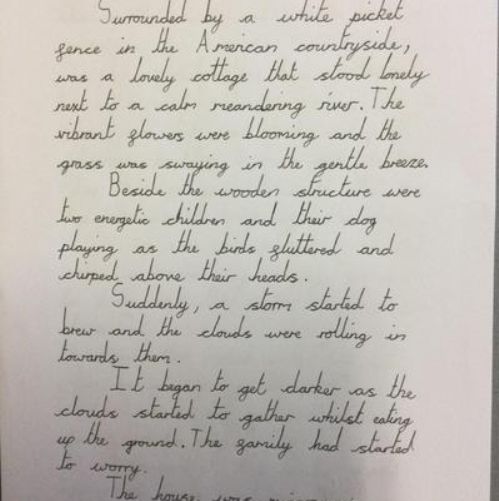 Surrounded by a white picket
fence in the American countryside,
was a lovely cottage that stood lonely
next to a calm meandering river. The
vibrant flowers were blooming and the
grass was swaying in the gentle breeze.
Beside the wooden structure were
two energetic children and their dog
playing as the birds fluttered and
chirped above their heads.
Suddenly, a storm started to
brew and the clouds were rolling in
towards them.
It began to get darker as the
clouds started to gather whilst eating
up the ground. The family had started
to worry.
The house was